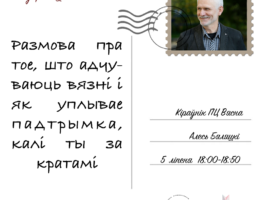 Размова пра
тое, што адчу-
ваюць вязні і
як уплывае
падтрымка,
калі ты за
кратамі
Кіраўнік ПЦ Вясна
Алесь Бяляцкі
5 ліпеня 18:00-18:50